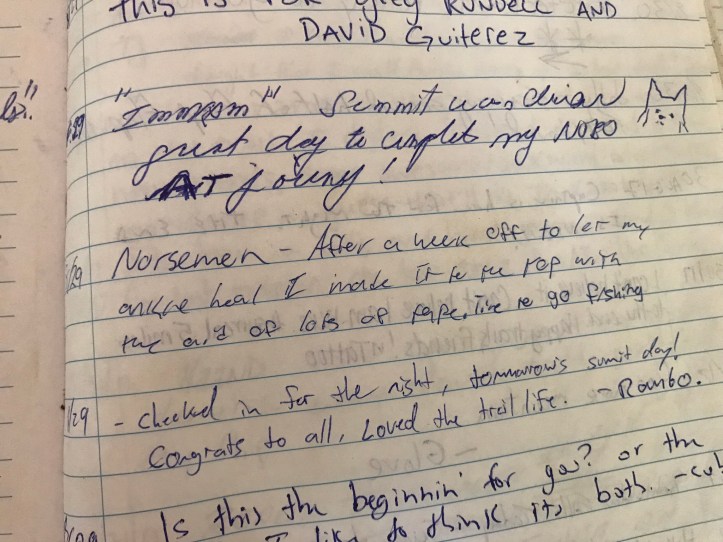 this is for Greg Rundell AND
DAVID Guiterez
ls."
29 Summit was clear
great day to complete my NOBO
AT journy!
/29 Norsemen - After a week off to let my
ankle heal I made it to the top with
the aid of lots of tape. Time to go fishing
/29 - Checked in for the night, tomorrow's sumit day!
Congrats to all, Loved the trail life. - Rambo.
Is this the beginnin' for you? or the
I like to think its both. - cub